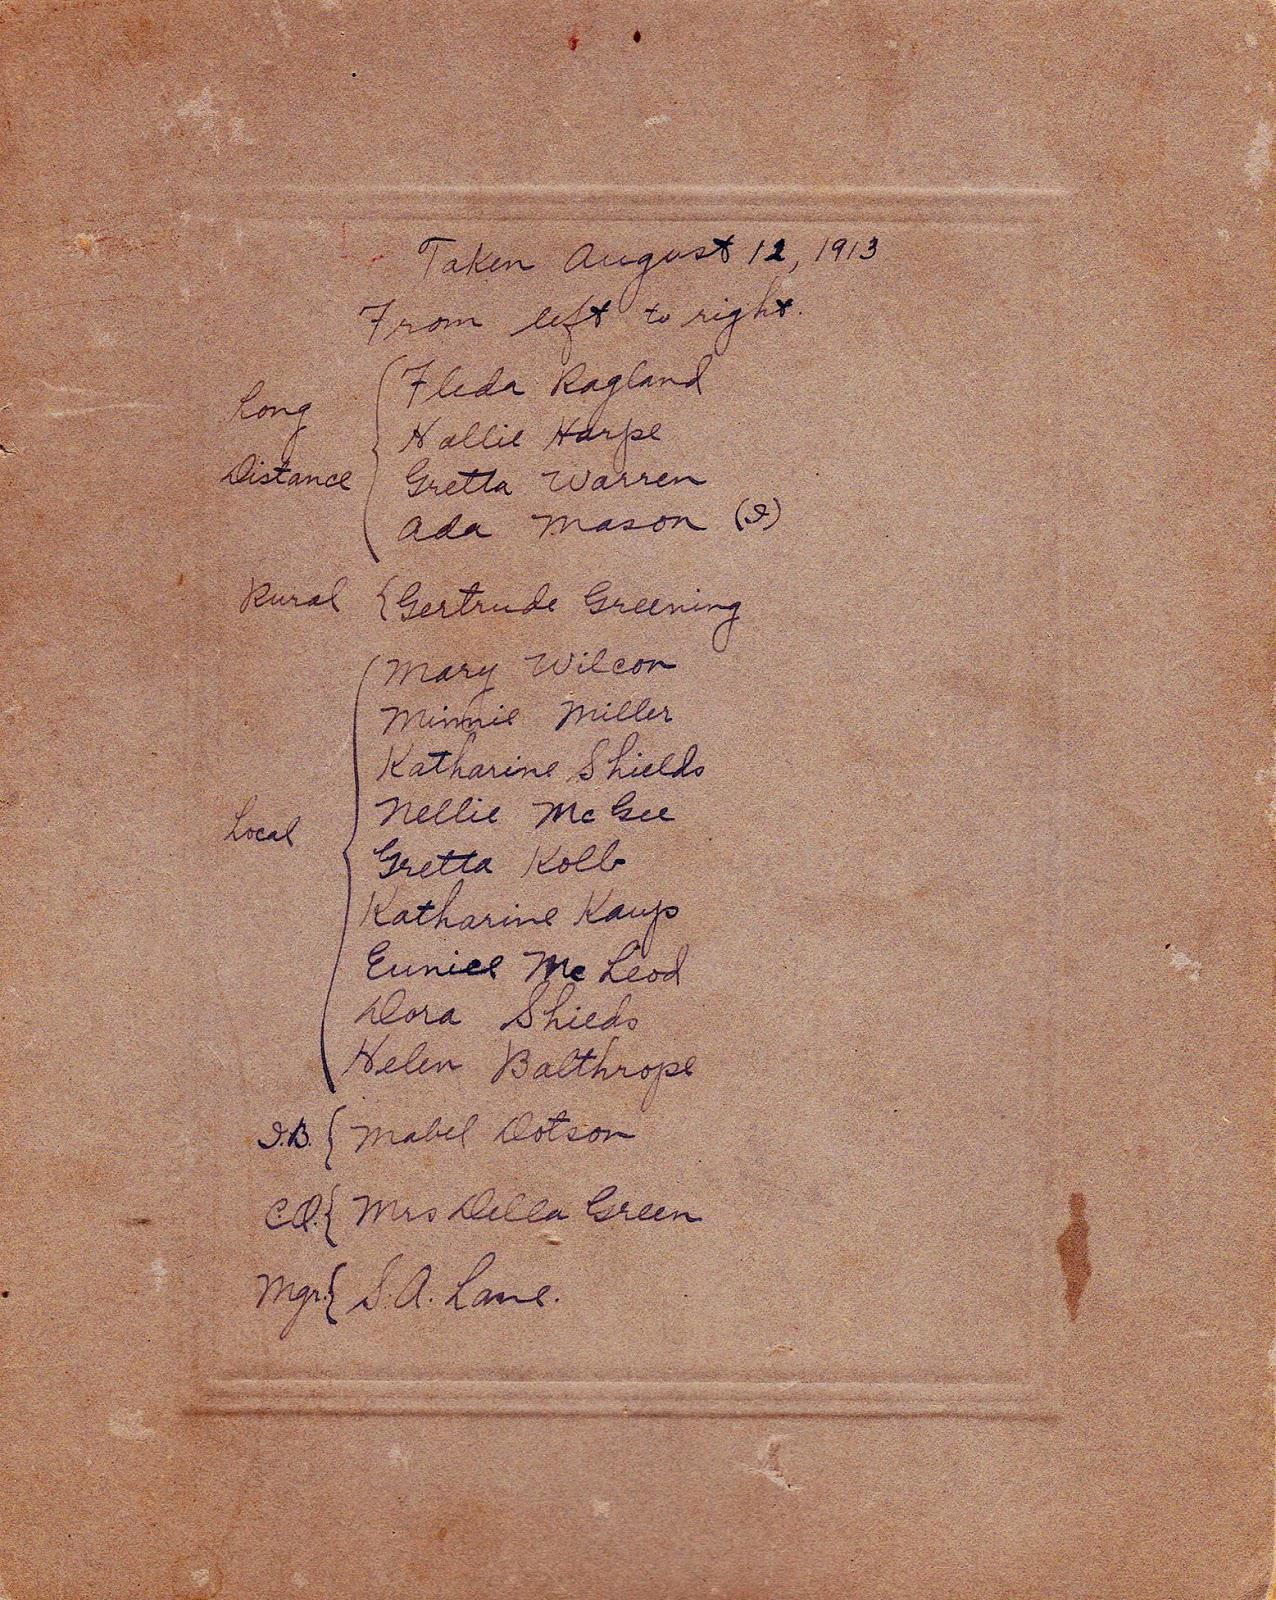 Taken August 12, 1913
From left to right.
Long Distance { Fleda Ragland
Hallie Harpe
Gretta Warren
Ada Mason (I)
Rural { Gertrude Greening
Local { Mary Wilcon
Minnie Miller
Katharine Shields
Nellie McGee
Gretta Kolb
Katharine Kaup
Eunice McLeod
Dora Shieds
Helen Balthrope
I.B. { Mabel Dotson
C.O. { Mrs Della Green
Mgr. { S. A. Lane.